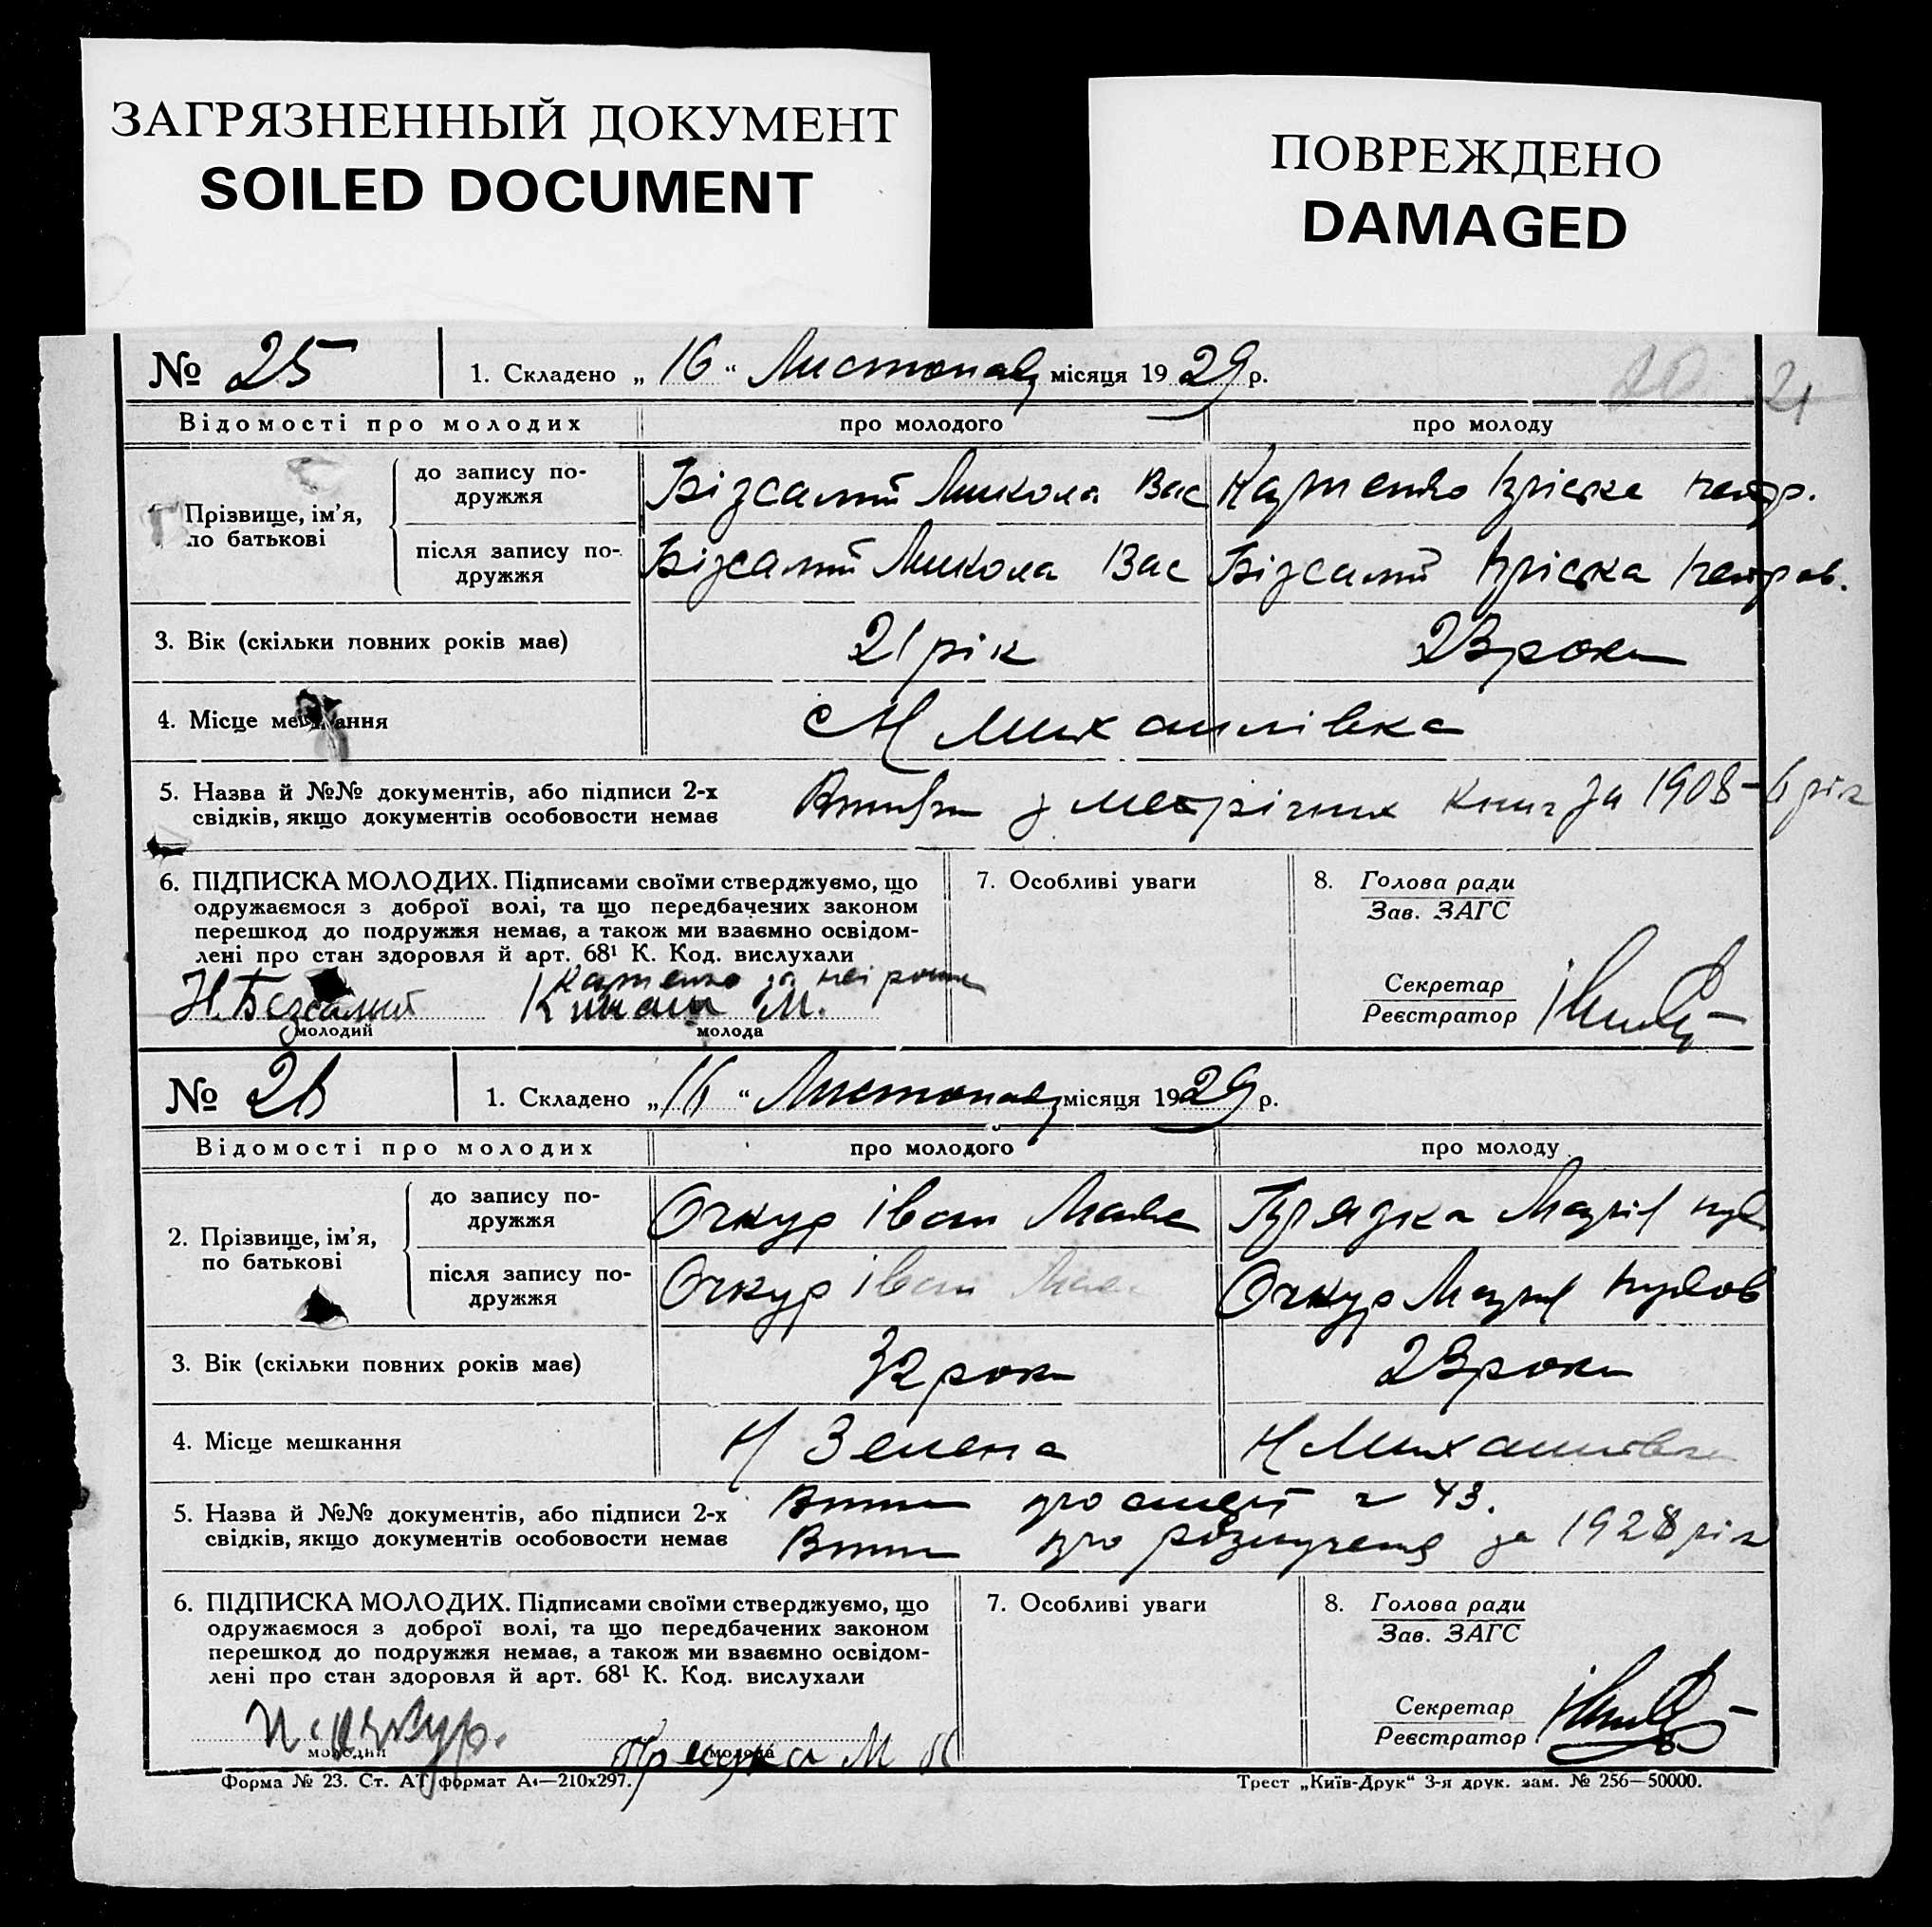 ЗАГРЯЗНЕННЫЙ ДОКУМЕНТ
SOILED DOCUMENT
ПОВРЕЖДЕНО
DAMAGED
№ 25
1. Складено „ 16 “ Листопад місяця 1929 р.
20 21
Відомості про молодих
про молодого
про молоду
Прізвище, ім’я, по батькові
до запису подружжя
Бізсалий Микола Вас
після запису подружжя
Бізсалий Микола Вас
Бізсалий
3. Вік (скільки повних років має)
21 рік
23 роки
4. Місце мешкання
с Н Михайлівка
5. Назва й №№ документів, або підписи 2-х
свідків, якщо документів особовости немає
з метричних книг за 1908-6 рік
6. ПІДПИСКА МОЛОДИХ. Підписами своїми стверджуємо, що
одружаємося з доброї волі, та що передбачених законом
перешкод до подружжя немає, а також ми взаємно освідом-
лені про стан здоровля й арт. 68¹ К. Код. вислухали
Н. Безсалий
М.
молодий
молода
7. Особливі уваги
8. Голова ради
Зав. ЗАГС
Секретар
Реєстратор
№ 26
1. Складено „ 16 “ Листопад місяця 1929 р.
Відомості про молодих
про молодого
про молоду
2. Прізвище, ім’я,
по батькові
до запису по-
дружжя
Очкур Іван
після запису по-
дружжя
Очкур Іван
Очкур
3. Вік (скільки повних років має)
32 роки
23 роки
4. Місце мешкання
Н Зелена
Н Михайлівка
5. Назва й №№ документів, або підписи 2-х
свідків, якщо документів особовости немає
про смерть 43.
про розлучення за 1928 рік
6. ПІДПИСКА МОЛОДИХ. Підписами своїми стверджуємо, що
одружаємося з доброї волі, та що передбачених законом
перешкод до подружжя немає, а також ми взаємно освідом-
лені про стан здоровля й арт. 68¹ К. Код. вислухали
молодий
молода
7. Особливі уваги
8. Голова ради
Зав. ЗАГС
Секретар
Реєстратор
Форма № 23. Ст. АТ формат А₄—210х297.
Трест „Київ-Друк“ 3-я друк. зам. № 256—50000.